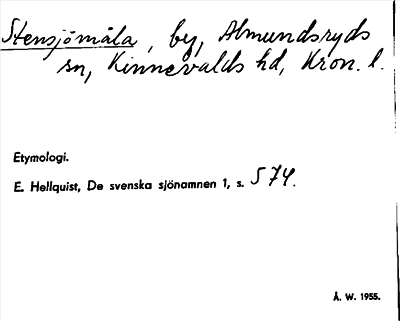 Stensjömåla, by, Almundsryds
sn, Kinnevalds hd, Kron. l.
Etymologi.
E. Hellquist, De svenska sjönamnen 1, s. 574.
Å. W. 1955.